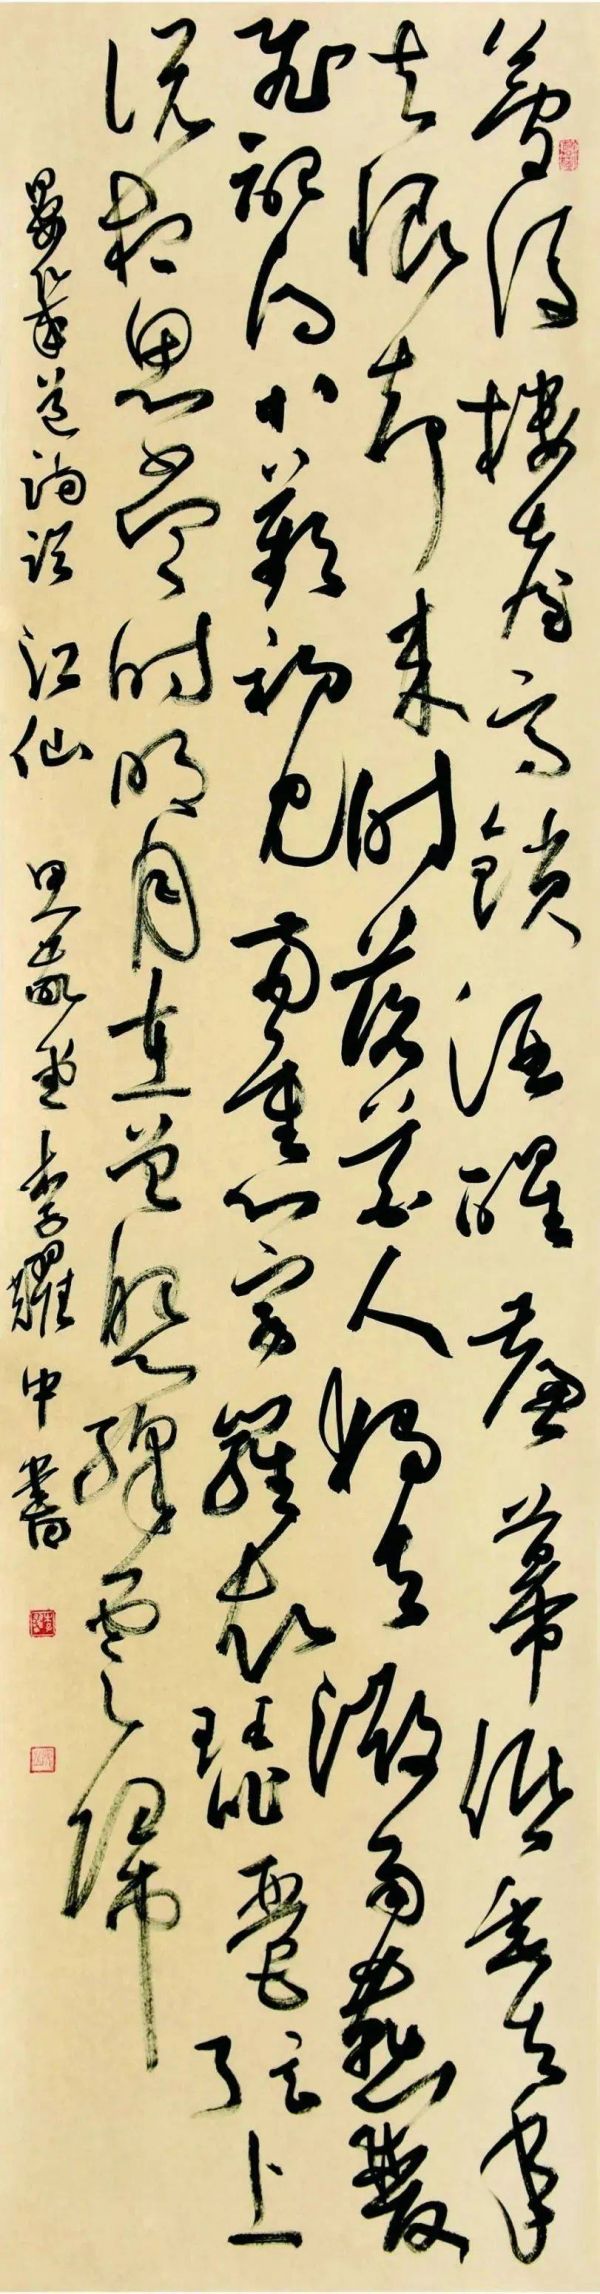 夢後樓臺高鎖酒醒簾幕低垂去年
春恨却來時落花人獨立微雨燕雙
飛記得小蘋初見兩重心字羅衣琵琶弦上
説相思當時明月在曾照綵雲歸
晏幾道詞臨江仙 李耀中書